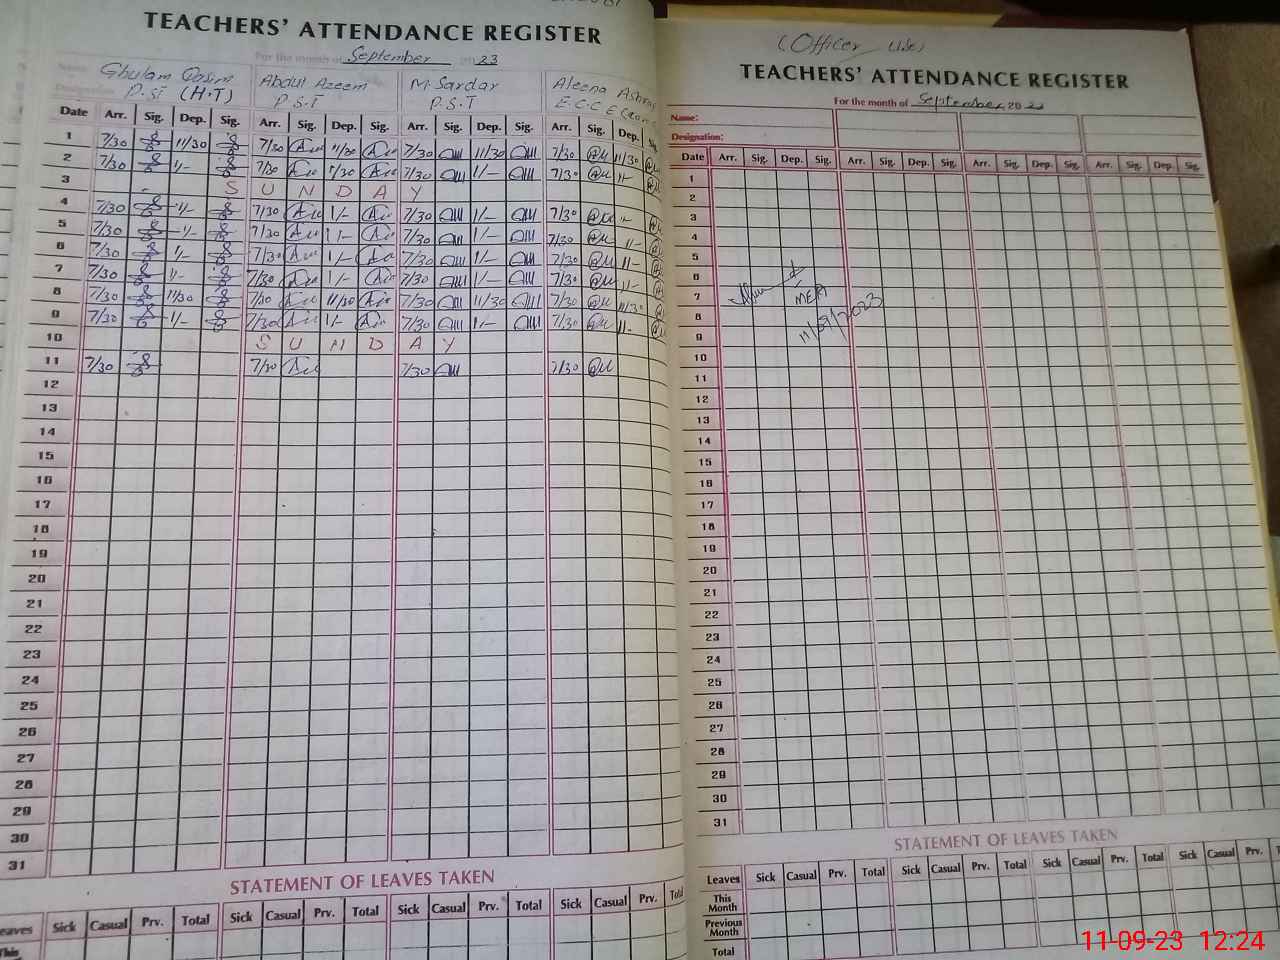 TEACHERS' ATTENDANCE REGISTER
For the month of September 2023
Name Ghulam Qasim Abdul Azeem M. Sardar Aleena Ashraf
Designation P.ST (H.T) P.S.T P.S.T E.C.C E
Date Arr. Sig. Dep. Sig. Arr. Sig. Dep. Sig. Arr. Sig. Dep. Sig. Arr. Sig. Dep. Sig.
1 7/30 11/30 7/30 11/30 7/30 11/30 7/30 11/30
2 7/30 1/- 7/30 11/30 7/30 1/- 7/30 11-
3 S U N D A Y
4 7/30 1/- 7/30 1/- 7/30 1/- 7/30
5 7/30 1/- 7/30 1/- 7/30 1/- 7/30 11-
6 7/30 1/- 7/30 1/- 7/30 1/- 7/30 11-
7 7/30 1/- 7/30 1/- 7/30 1/- 7/30 11-
8 7/30 11/30 7/30 11/30 7/30 11/30 7/30 11/30
9 7/30 1/- 7/30 1/- 7/30 1/- 7/30 11-
10 S U N D A Y
11 7/30 7/30 7/30 7/30
12
13
14
15
16
17
18
19
20
21
22
23
24
25
26
27
28
29
30
31
STATEMENT OF LEAVES TAKEN
Leaves Sick Casual Prv. Total Sick Casual Prv. Total Sick Casual Prv. Total Sick Casual Prv. Total
This
(Officer Use)
TEACHERS' ATTENDANCE REGISTER
For the month of September 2023
Name:
Designation:
Date Arr. Sig. Dep. Sig. Arr. Sig. Dep. Sig. Arr. Sig. Dep. Sig. Arr. Sig. Dep. Sig.
1
2
3
4
5
6
7 MEA
8 11/09/2023
9
10
11
12
13
14
15
16
17
18
19
20
21
22
23
24
25
26
27
28
29
30
31
STATEMENT OF LEAVES TAKEN
Leaves Sick Casual Prv. Total Sick Casual Prv. Total Sick Casual Prv. Total Sick Casual Prv.
This Month
Previous Month
Total
11-09-23 12:24